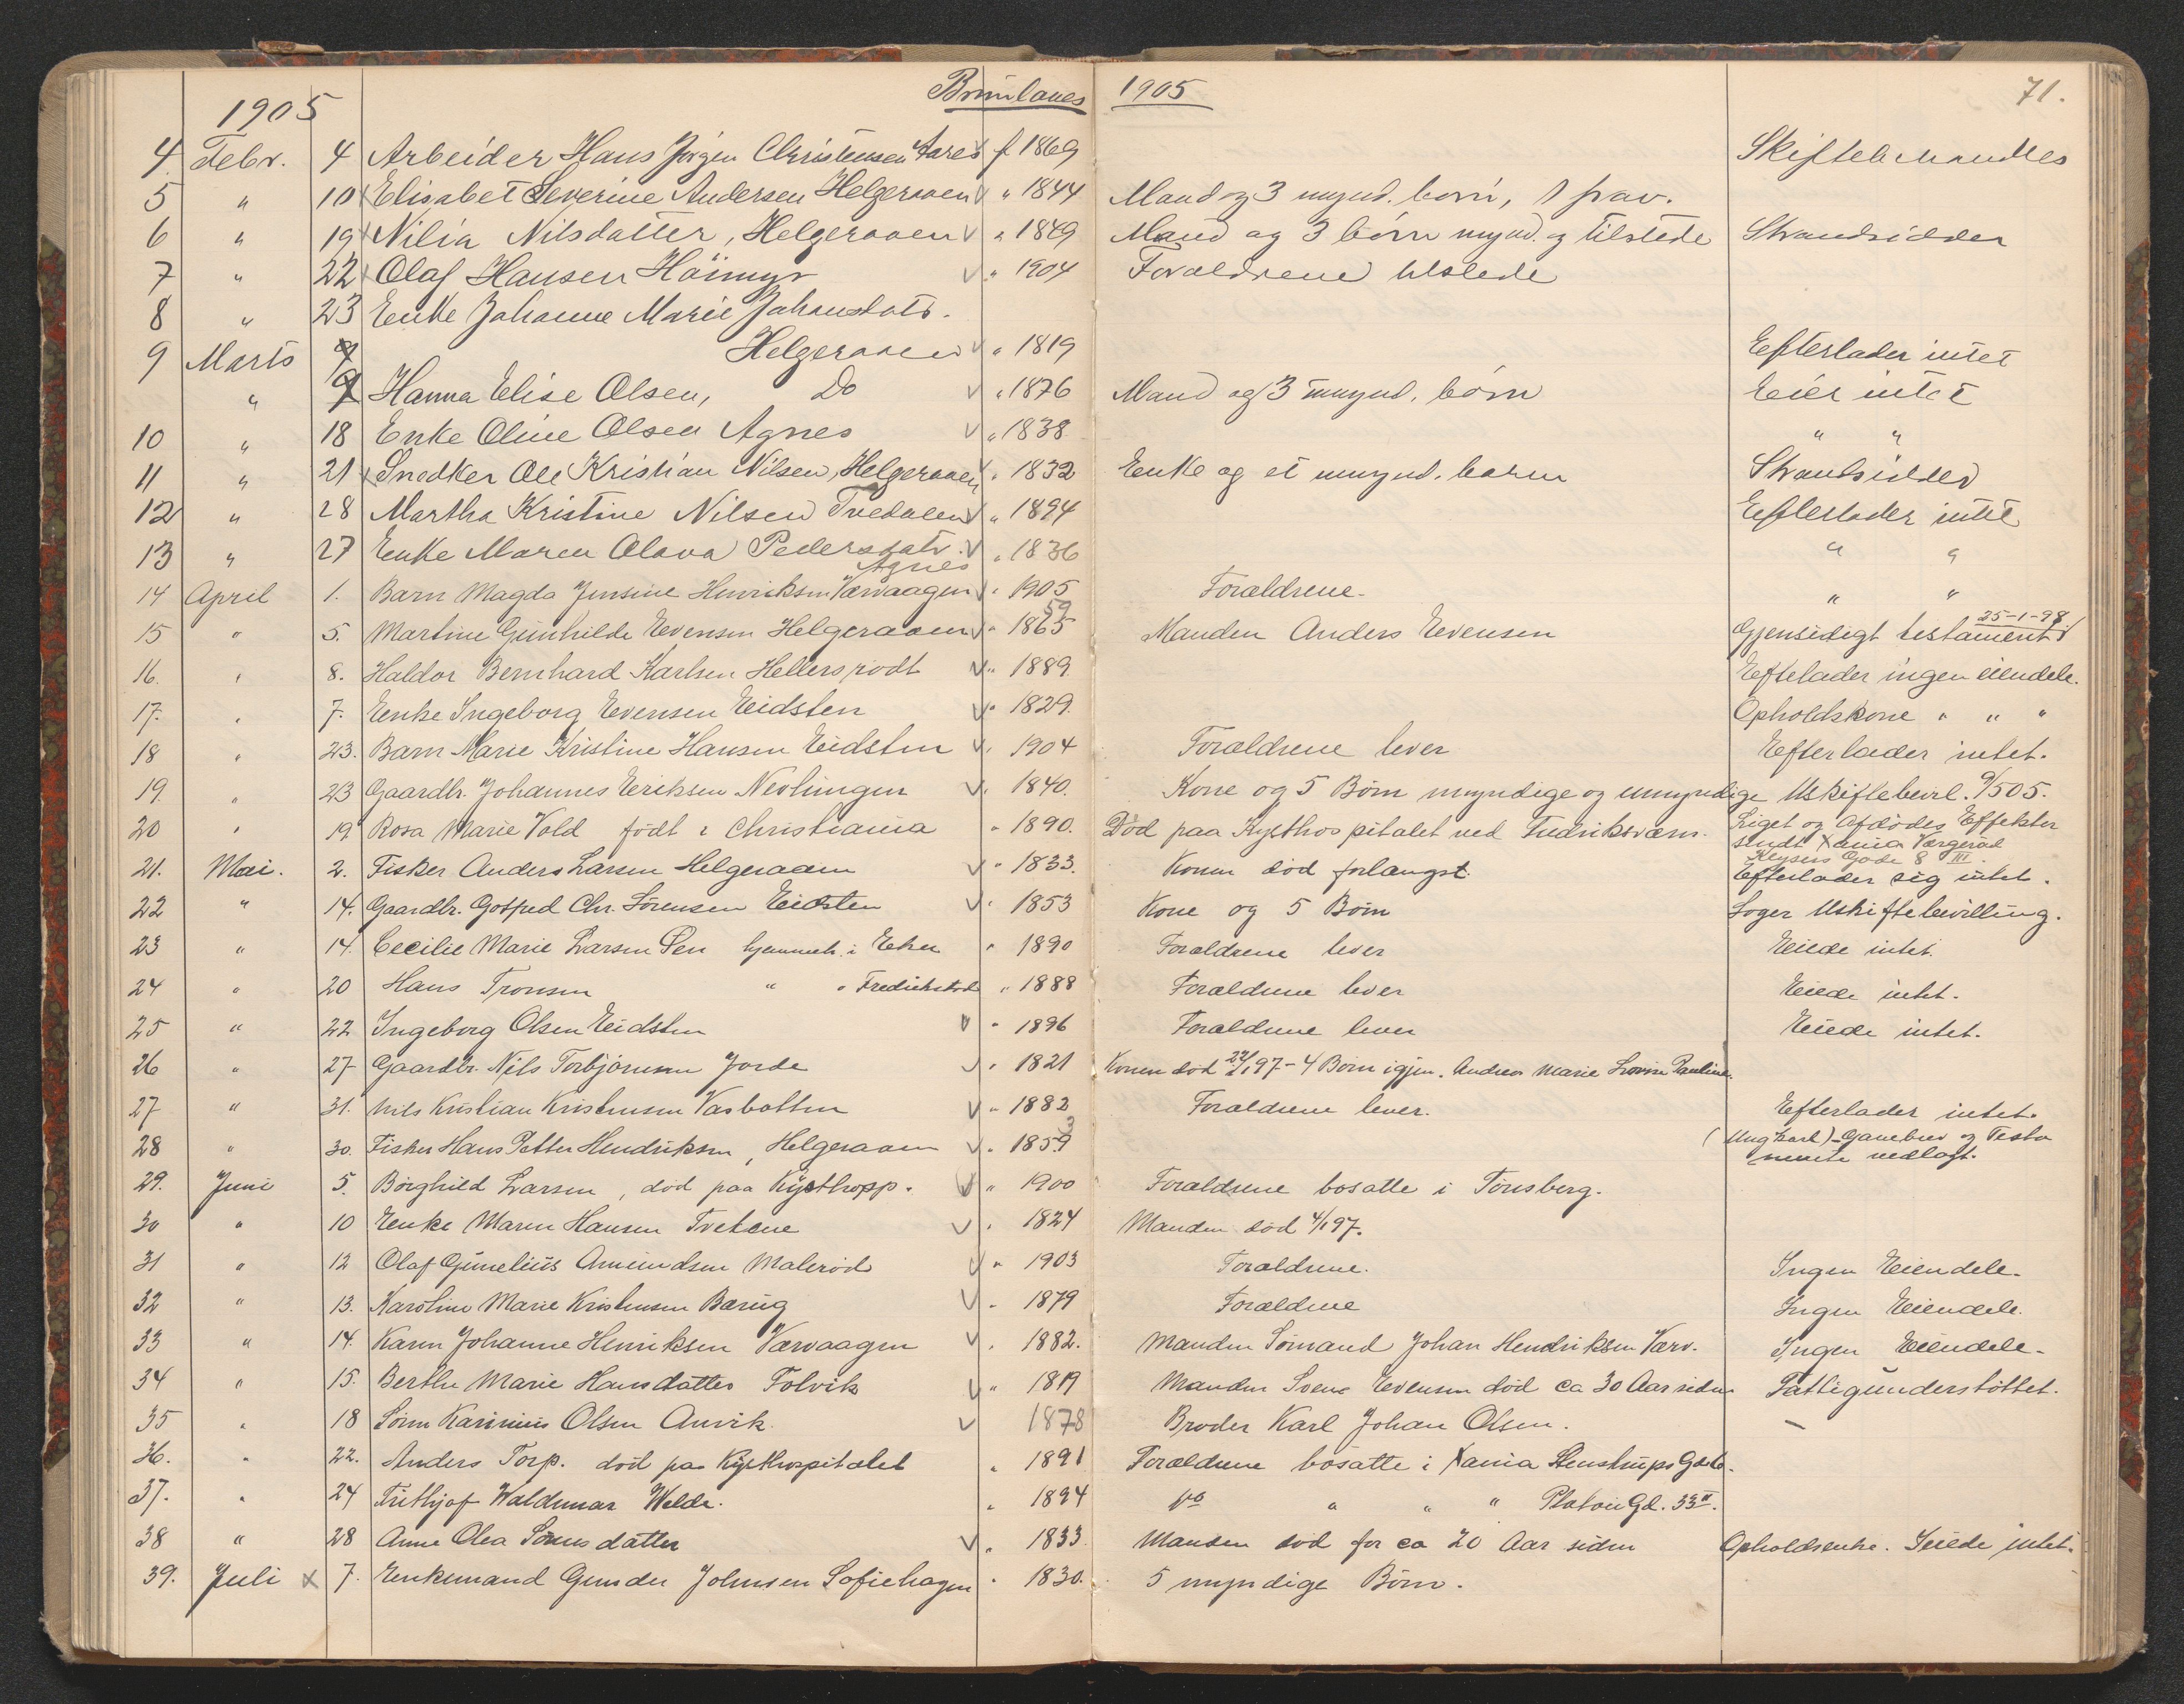 1905 Brunlanes 1905 71.
4 Febr. 4 Arbeider Hans Jörgen Christensen Aares f. 1869 Skiftebehandles
5 " 10 Elisabet Severine Andersen Helgeraaen " 1844 Mand og 3 mynd. börn, 1 frav.
6 " 19 Nilia Nilsdatter, Helgeraaen " 1849 Mand og 3 börn mynd. og tilstede Strandsidder
7 " 22 Olaf Hansen Höimyr " 1904 Forældrene tilstede
8 " 23 Enke Johanne Marie Johansdatr.
9 Marts 9 Helgeraaen " 1819 Efterlader intet
" 9 Hanna Elise Olsen, Do " 1876 Mand og 3 umynd. börn Eier intet
10 " 18 Enke Oline Olsen Agnes " 1838 " "
11 " 21 Snedker Ole Kristian Nilsen, Helgeraaen " 1832 Enke og et umynd. barn Strandsidder
12 " 28 Martha Kristine Nilsen Tvedalen " 1894 Efterlader intet
13 " 27 Enke Maren Olava Pedersdatr. " 1836 " "
Agnes
14 April 1. Barn Magda Jensine Henriksen Værvaagen " 1905 Forældrene. " "
15 " 5. Martine Gunhilde Evensen Helgeraaen " 1865 59 Manden Anders Evensen Gjensidigt testament 25-1-98
16. " 8. Haldor Bernhard Karlsen Hellersrödt " 1889 Eftelader ingen eiendele.
17. " 7. Enke Ingeborg Evensen Eidsten " 1829. Opholdskone " " "
18 " 23. Barn Marie Kristine Hansen Eidsten " 1904 Forældrene lever Efterlader intet.
19. " 23 Gaardbr. Johannes Eriksen Nevlungen " 1840. Kone og 5 Börn myndige og umyndige Uskiftebevil. 9/5 05.
20 " 19 Rosa Marie Vold födt i Christiania " 1890. Död paa Kysthospitalet ved Fredriksværn. Liget og Afdödes Effekter
sendt Xania Værgeraad
Keysers Gade 8 III.
21. Mai. 2. Fisker Anders Larsen Helgeraaen " 1833. Konen död forlængst. Efterlader sig intet.
22 " 14. Gaardbr. Gotfred Chr. Sörensen Eidsten " 1853 Kone og 5 Börn Söger Uskiftebevilling.
23 " 14. Cecilie Marie Larsen hjemmeh. i Eker " 1890 Forældrene lever Eiede intet.
24 " 20 Hans Tronsen " " Fredrikstad " 1888 Forældrene lever Eiede intet.
25 " 22 Ingeborg Olsen Eidsten " 1896 Forældrene lever Eiede intet.
26 " 27 Gaardbr. Nils Torbjörnsen Jorde " 1821 Konen död 22/1 97 - 4 Börn igjen. Andrea Marie Lovise Pauline.
27 " 31. Nils Kristian Kristensen Vasbotten " 1882 Forældrene lever. Efterlader intet.
28 " 30. Fisker Hans Petter Hendriksen, Helgeraaen " 1859 3 (Ungkarl) - Gavebrev og Testa
mente vedlagt.
29. Juni 5. Borghild Larsen, död paa Kysthosp. " 1900 Forældrene bosatte i Tönsberg.
30 " 10 Enke Maren Hansen Tvetene " 1824 Manden död 4/1 97.
31 " 12 Olaf Gunelius Amundsen Maleröd " 1903 Forældrene. Ingen Eiendele.
32 " 13. Karoline Marie Kristensen Barug " 1879 Forældrene Ingen Eiendele.
33 " 14. Karen Johanne Henriksen Værvaagen " 1882. Manden Sömand Johan Hendriksen Værv. Ingen Eiendele.
34 " 15. Berthe Marie Hansdatter Tolvik " 1819 Manden Svend Evensen död ca 30 Aar siden Fattigunderstöttet.
35 " 18 Sören Karinius Olsen Anvik. 1878 Broder Karl Johan Olsen. —
36. " 22. Anders Torp. död paa Kysthospitalet " 1891 Forældrene bosatte i Xania Stenstrups Gade.
37. " 24 Frithjof Waldemar Welde. " 1894 Do " " " Platou Gd. 33 II.
38 " 28 Anne Olea Sörensdatter " 1833 Manden död for ca 20 Aar siden Opholdsenke. Eiede intet.
39. Juli x 7. Enkemand Gunder Johnsen Sofiehagen " 1830. 5 myndige Börn.